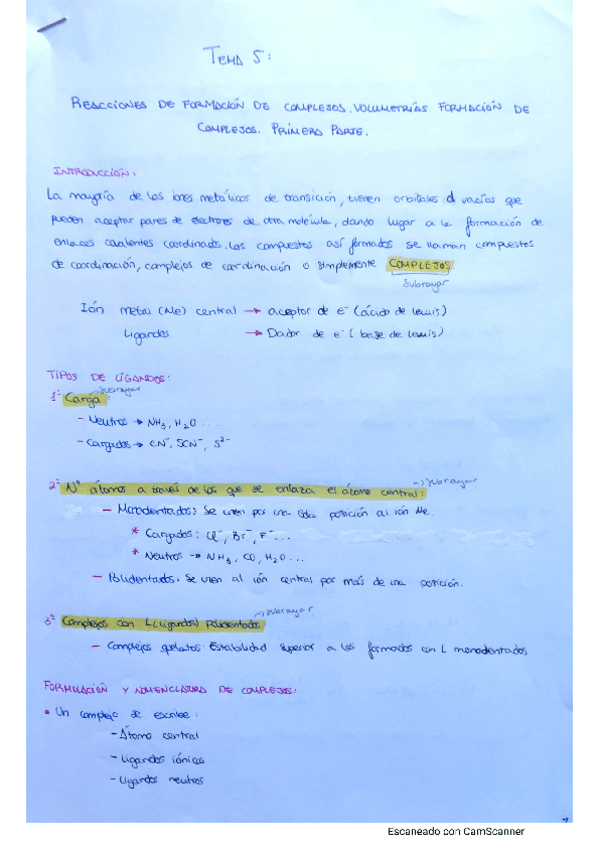 TEMA 5:
REACCIONES DE FORMACIÓN DE COMPLEJOS. VOLUMETRÍAS FORMACIÓN DE
COMPLEJOS. PRIMERA PARTE.
INTRODUCCIÓN:
La mayoría de los iones metálicos de transición, tienen orbitales d vacíos que
pueden aceptar pares de electrones de otra molécula, dando lugar a la formación de
enlaces covalentes coordinados. Los compuestos así formados se llaman compuestos
de coordinación, complejos de coordinación o simplemente COMPLEJOS.
Subrayar
Ión metal (Me) central → aceptor de e⁻ (ácido de Lewis)
Ligandos → Dador de e⁻ (base de Lewis)
TIPOS DE LIGANDOS:
→ subrayar
1º Carga:
- Neutros → NH₃, H₂O ...
- Cargados → CN⁻, SCN⁻, S²⁻
→ subrayar
2º Nº átomos a través de los que se enlaza el átomo central:
- Monodentados: Se unen por una sola posición al ión Me.
* Cargados: Cl⁻, Br⁻, F⁻...
* Neutros → NH₃, CO, H₂O...
- Polidentados: Se unen al ión central por más de una posición.
→ subrayar
3º Complejos con L(ligandos) Polidentados
- Complejos quelatos: Estabilidad superior a los formados con L monodentados
FORMULACIÓN Y NOMENCLATURA DE COMPLEJOS:
• Un complejo se escribe:
- Átomo central
- Ligandos iónicos
- Ligandos neutros
1
Escaneado con CamScanner